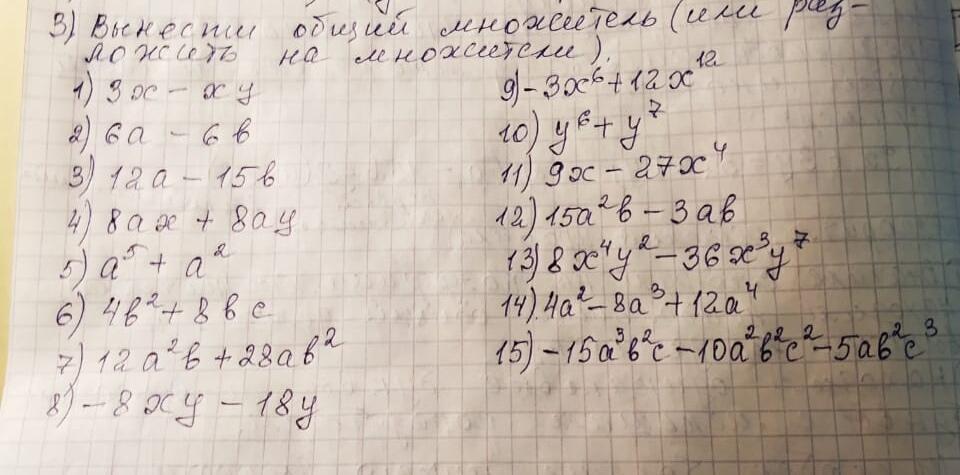 3) Вынести общий множитель (или раз-
ложить на множители).
1) 3x - xy
2) 6a - 6b
3) 12a - 15b
4) 8ax + 8ay
5) a⁵ + a²
6) 4b² + 8bc
7) 12a²b + 28ab²
8) - 8xy - 18y
9) - 3x⁶ + 12x¹²
10) y⁶ + y⁷
11) 9x - 27x⁴
12) 15a²b - 3ab
13) 8x⁴y² - 36x³y⁷
14) 4a² - 8a³ + 12a⁴
15) - 15a³b²c - 10a²b²c² - 5ab²c³